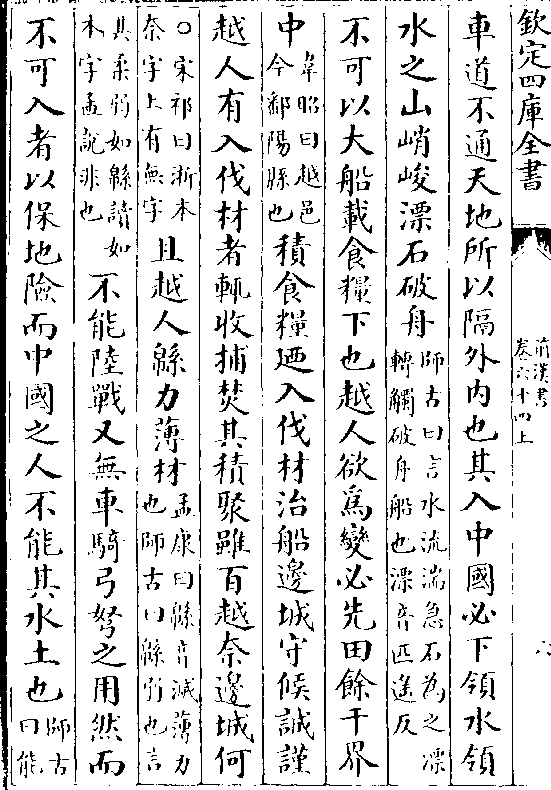 欽定四庫全書
前漢書
卷六十四上
車道不通天地所以隔外内也其入中國必下領水領
水之山峭峻漂石破舟師古曰言水流湍急石為之漂
轉觸破舟船也漂音匹遙反
不可以大船載食糧下也越人欲爲變必先田餘干界
中韋昭曰越邑
今鄱陽縣也積食糧廼入伐材治船邊城守候誠謹
越人有入伐材者輒收捕焚其積聚雖百越奈邊城何
○宋祁曰浙本
奈字上有無字且越人緜力薄材孟康曰緜音滅薄力
也師古曰緜弱也言
其柔弱如緜讀如
本字孟說非也不能陸戰又無車騎弓弩之用然而
不可入者以保地險而中國之人不能其水土也師古
曰能